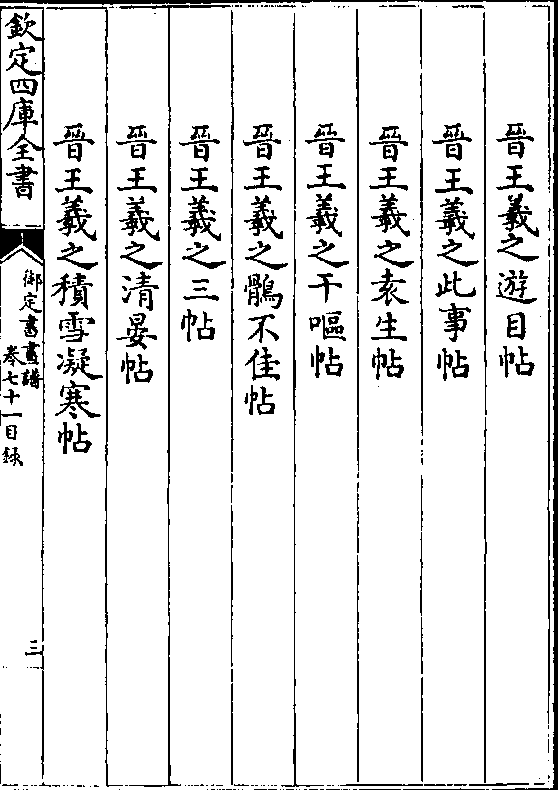 晉王羲之遊目帖
晉王羲之此事帖
晉王羲之袁生帖
晉王羲之干嘔帖
晉王羲之鶻不佳帖
晉王羲之三帖
晉王羲之清晏帖
晉王羲之積雪凝寒帖
欽定四庫全書
御定書畫譜
卷七十一目錄
三